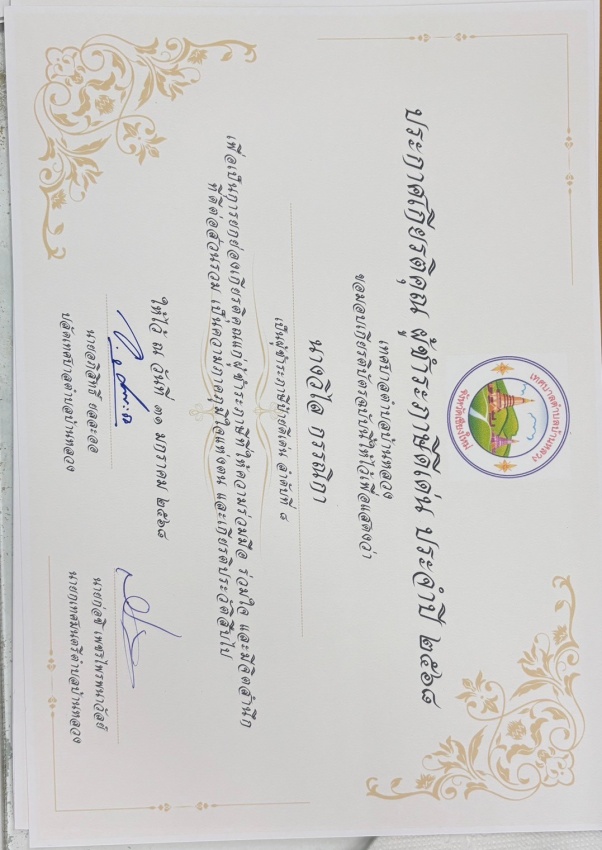 เทศบาลตำบลบ้านหลวง
จังหวัดเชียงใหม่
ประกาศเกียรติคุณ ผู้ชำระภาษีดีเด่น ประจำปี ๒๕๖๘
เทศบาลตำบลบ้านหลวง
ขอมอบเกียรติบัตรฉบับนี้ให้ไว้เพื่อแสดงว่า
นางวิไล กรรณิกา
เป็นผู้ชำระภาษีป้ายดีเด่น ลำดับที่ ๘
เพื่อเป็นการยกย่องเกียรติคุณแก่ผู้ชำระภาษีที่ให้ความร่วมมือ ร่วมใจ และมีจิตสำนึก
ที่ดีต่อส่วนรวม เป็นความภาคภูมิใจแห่งตน และเกียรติประวัติสืบไป
ให้ไว้ ณ วันที่ ๓๑ มกราคม ๒๕๖๘
นายอภิสิทธิ์ ยอละออ
ปลัดเทศบาลตำบลบ้านหลวง
นายก่อพี เพชรไพรพนาวัลย์
นายกเทศมนตรีตำบลบ้านหลวง